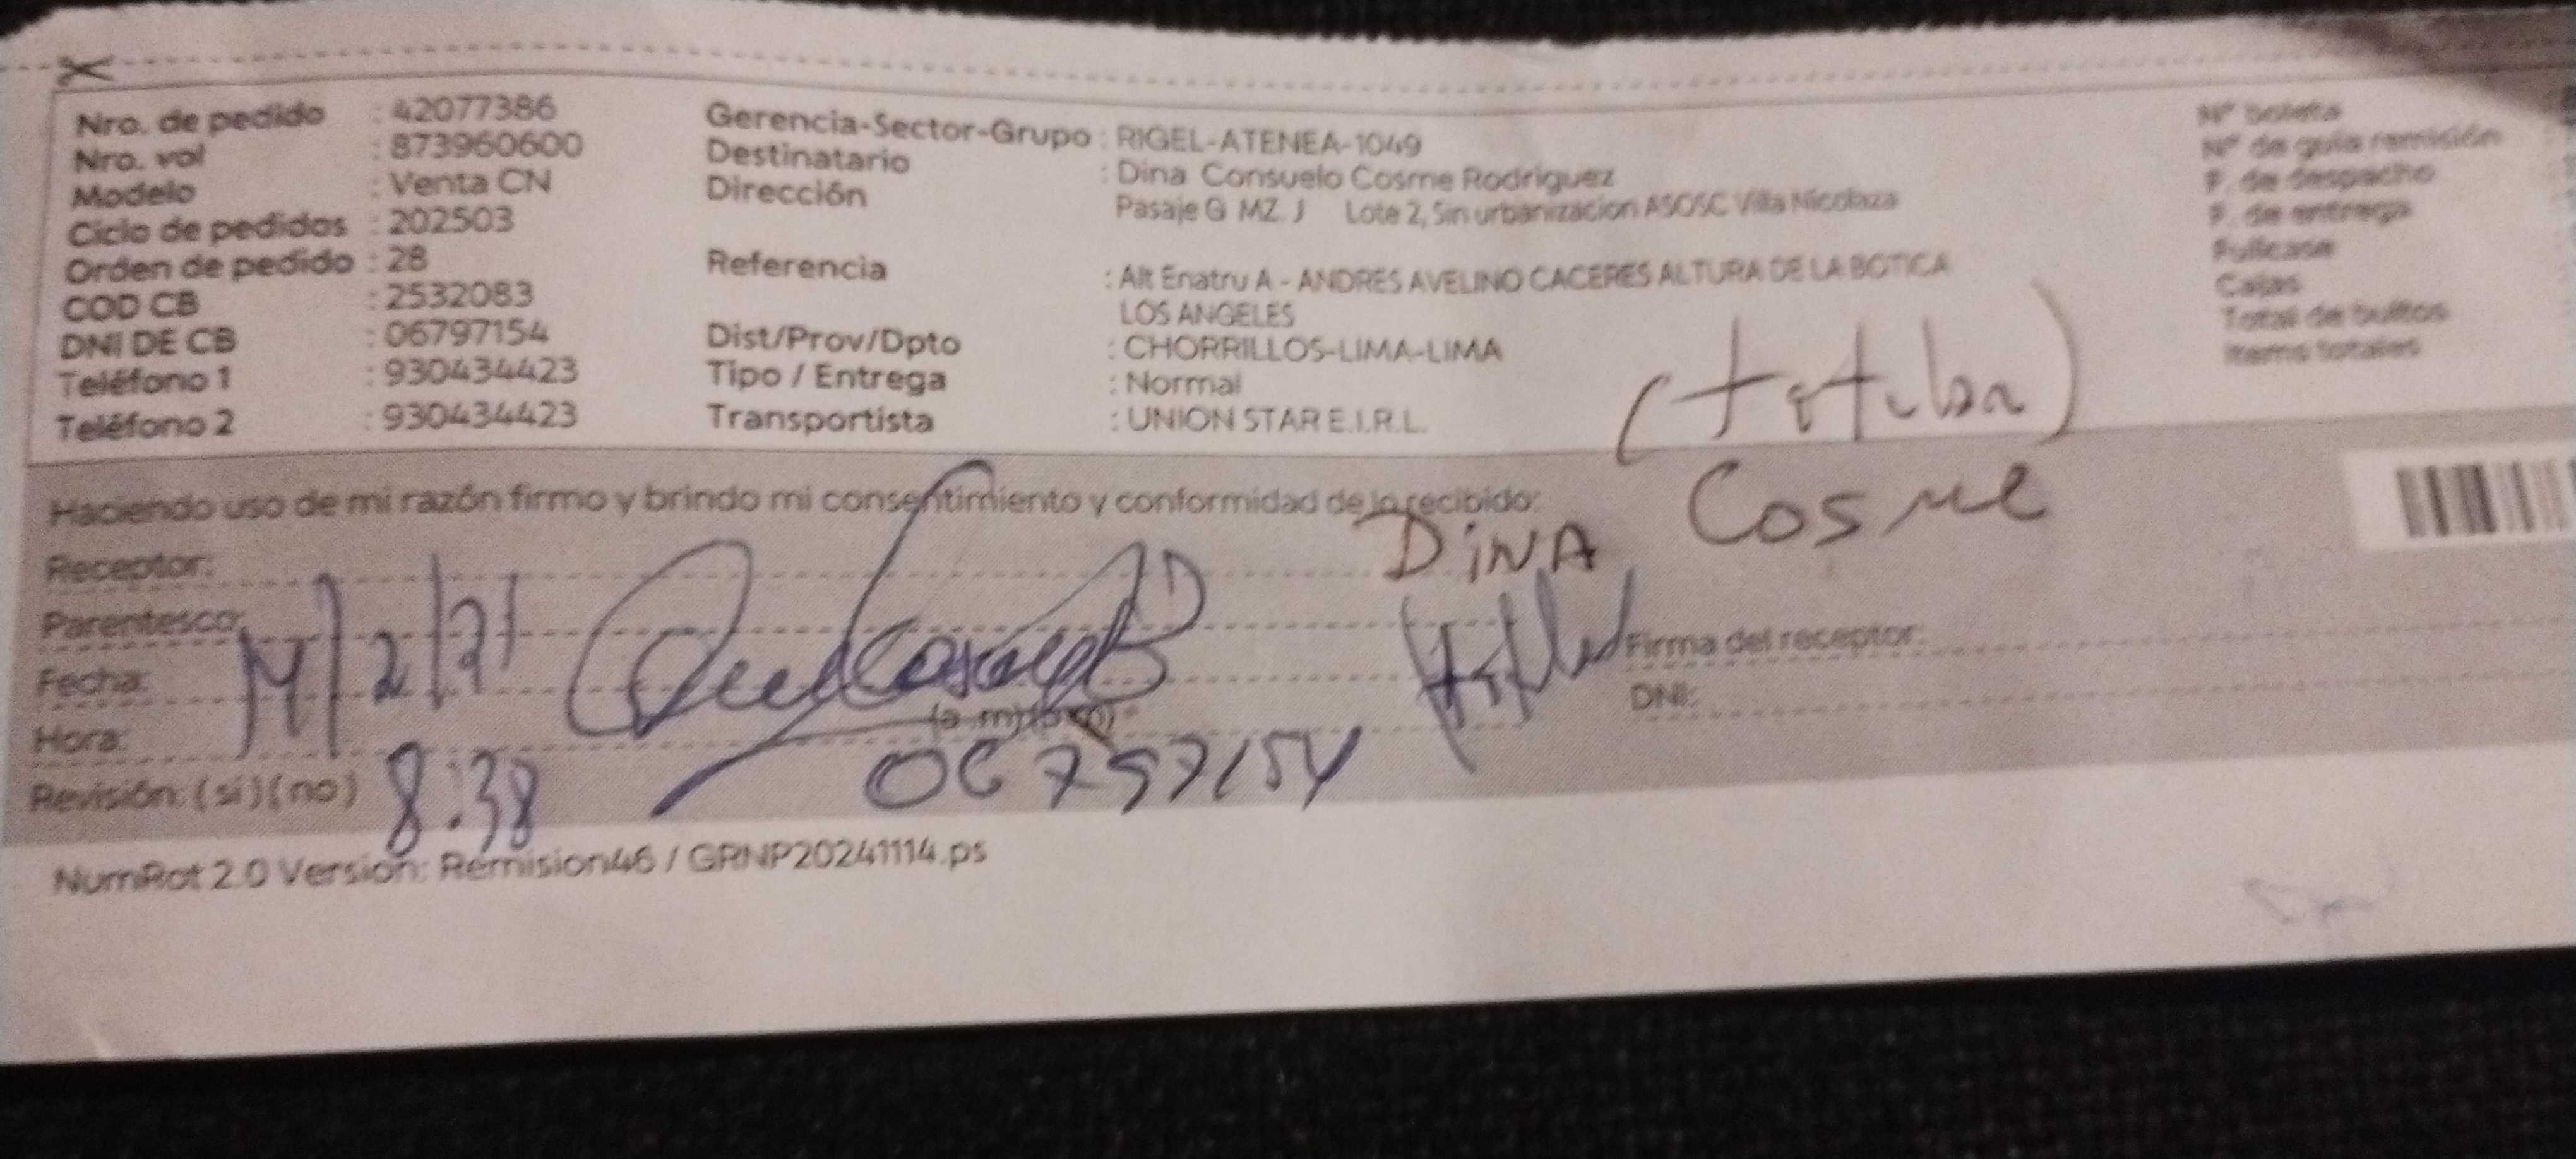 Nro. de pedido : 42077386
Nro. vol : 873960600
Modelo : Venta CN
Ciclo de pedidos : 202503
Orden de pedido : 28
COD CB : 2532083
DNI DE CB : 06797154
Teléfono 1 : 930434423
Teléfono 2 : 930434423
Gerencia-Sector-Grupo : RIGEL-ATENEA-1049
Destinatario : Dina Consuelo Cosme Rodriguez
Dirección Pasaje G MZ. J Lote 2, Sin urbanizacion ASOSC Villa Nicolaza
Referencia : Alt Enatru A - ANDRES AVELINO CACERES ALTURA DE LA BOTICA
LOS ANGELES
Dist/Prov/Dpto : CHORRILLOS-LIMA-LIMA
Tipo / Entrega : Normal
Transportista : UNION STAR E.I.R.L.
Nº boleta
Nº de guía remisión
F. de despacho
F. de entrega
Fullcase
Cajas
Total de bultos
Items totales
Haciendo uso de mi razón firmo y brindo mi consentimiento y conformidad de lo recibido:
DiNA Cosme
Receptor:
Parentesco:
Fecha:
Hora: (a.m)
8:38
06797154
Revisión: (si) (no)
Firma del receptor:
DNI:
NumRot 2.0 Version: Remision46 / GRNP20241114.ps